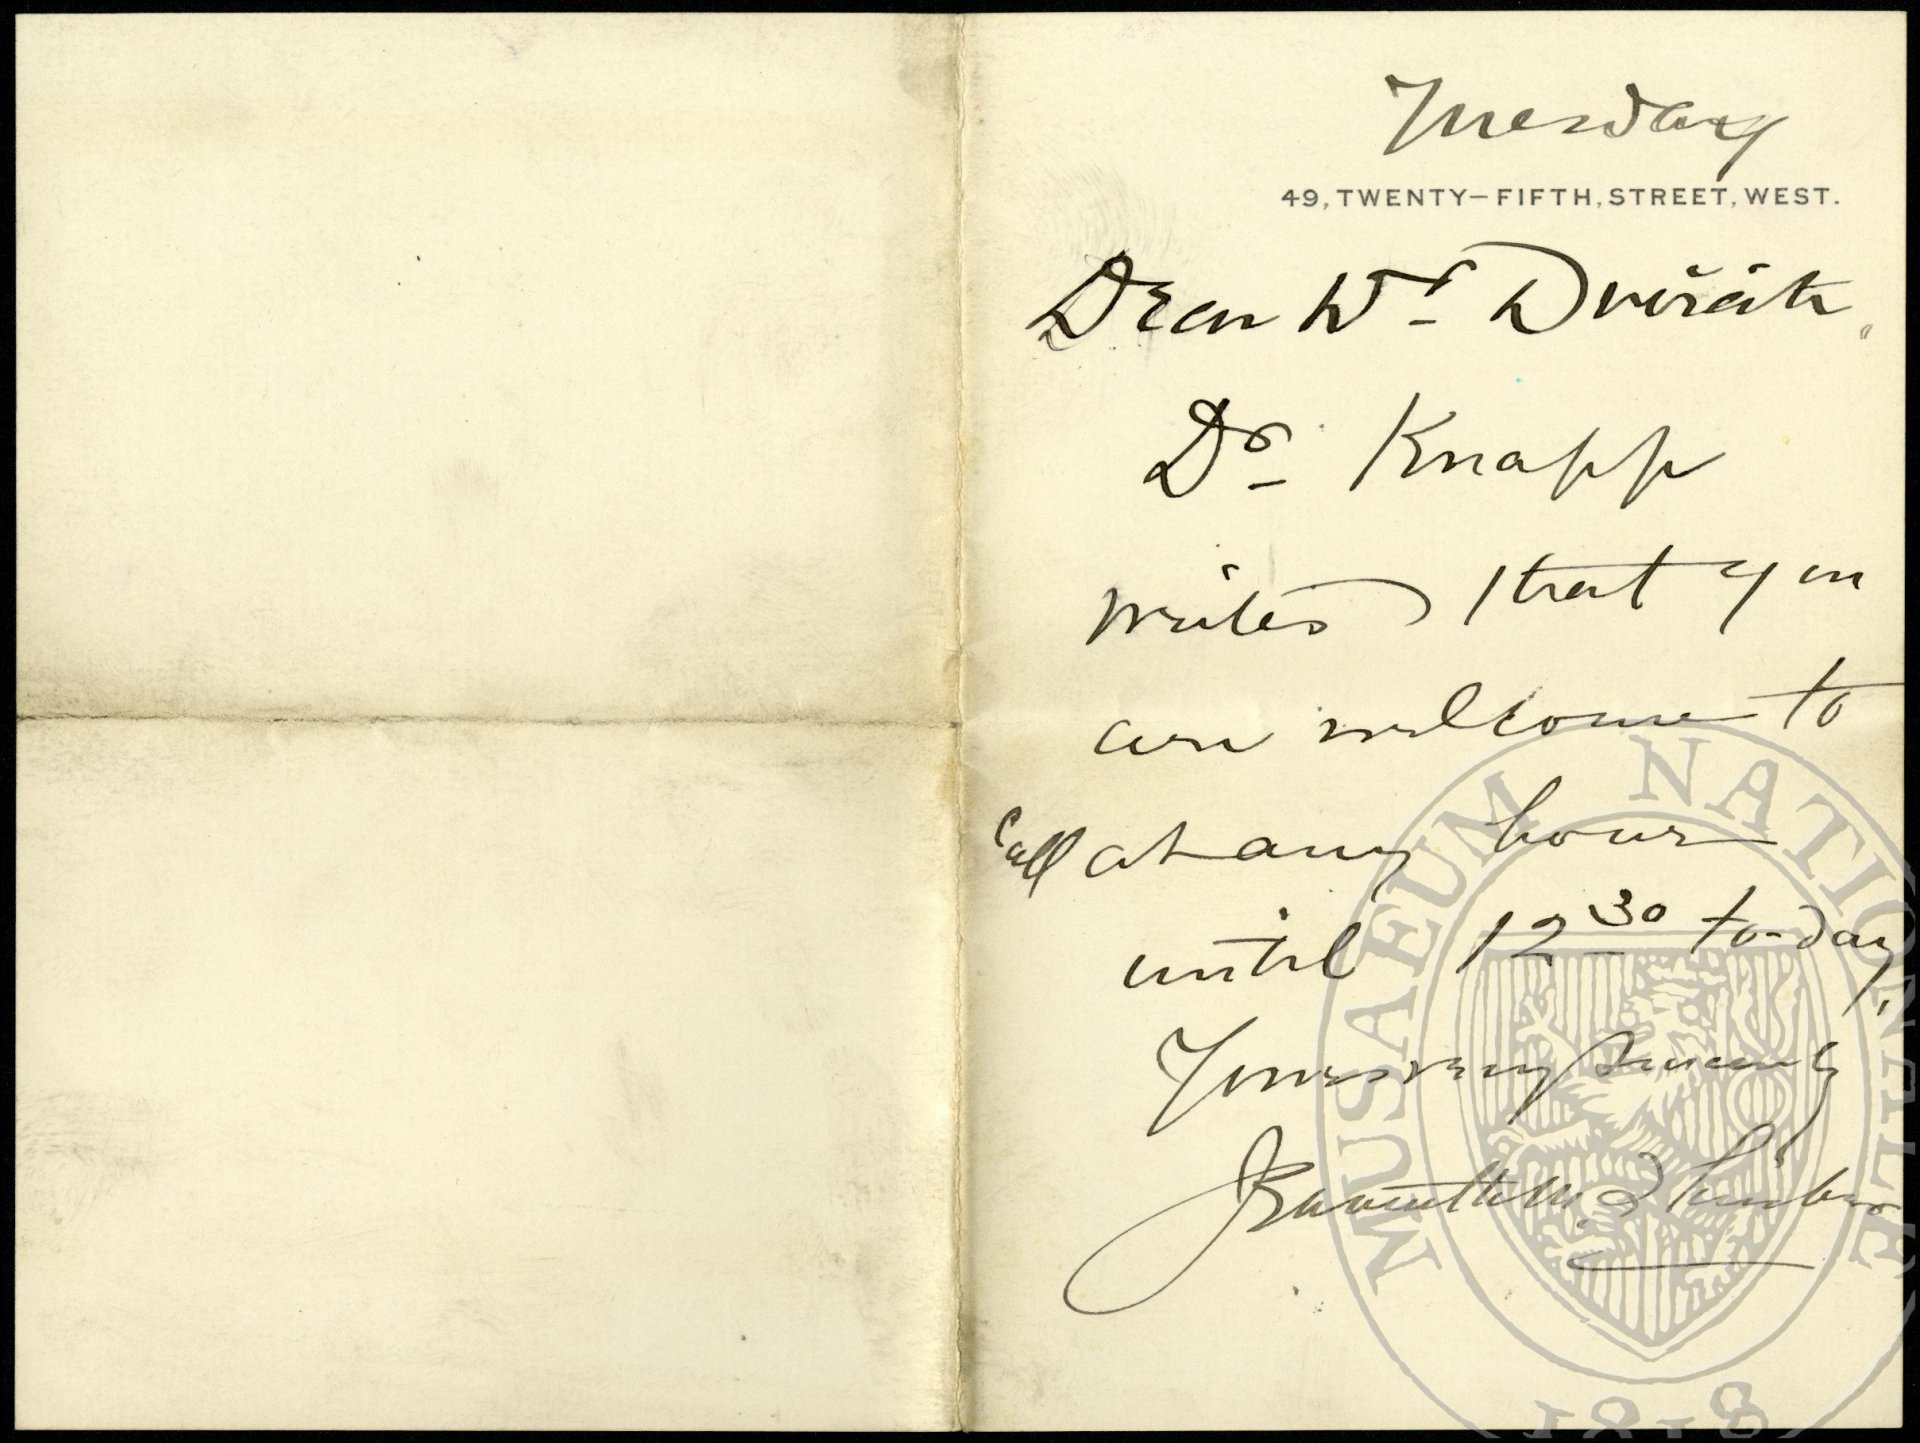 Tuesday
49, TWENTY-FIFTH, STREET, WEST.
Dear Dr Dvořák,
Dr. Knapp
writes that you
are welcome to
call at any hour
until 12 30 to-day.
Yours very sincerely
Jeannette M. Thurber
MUSAEUM NATIONALE
1818